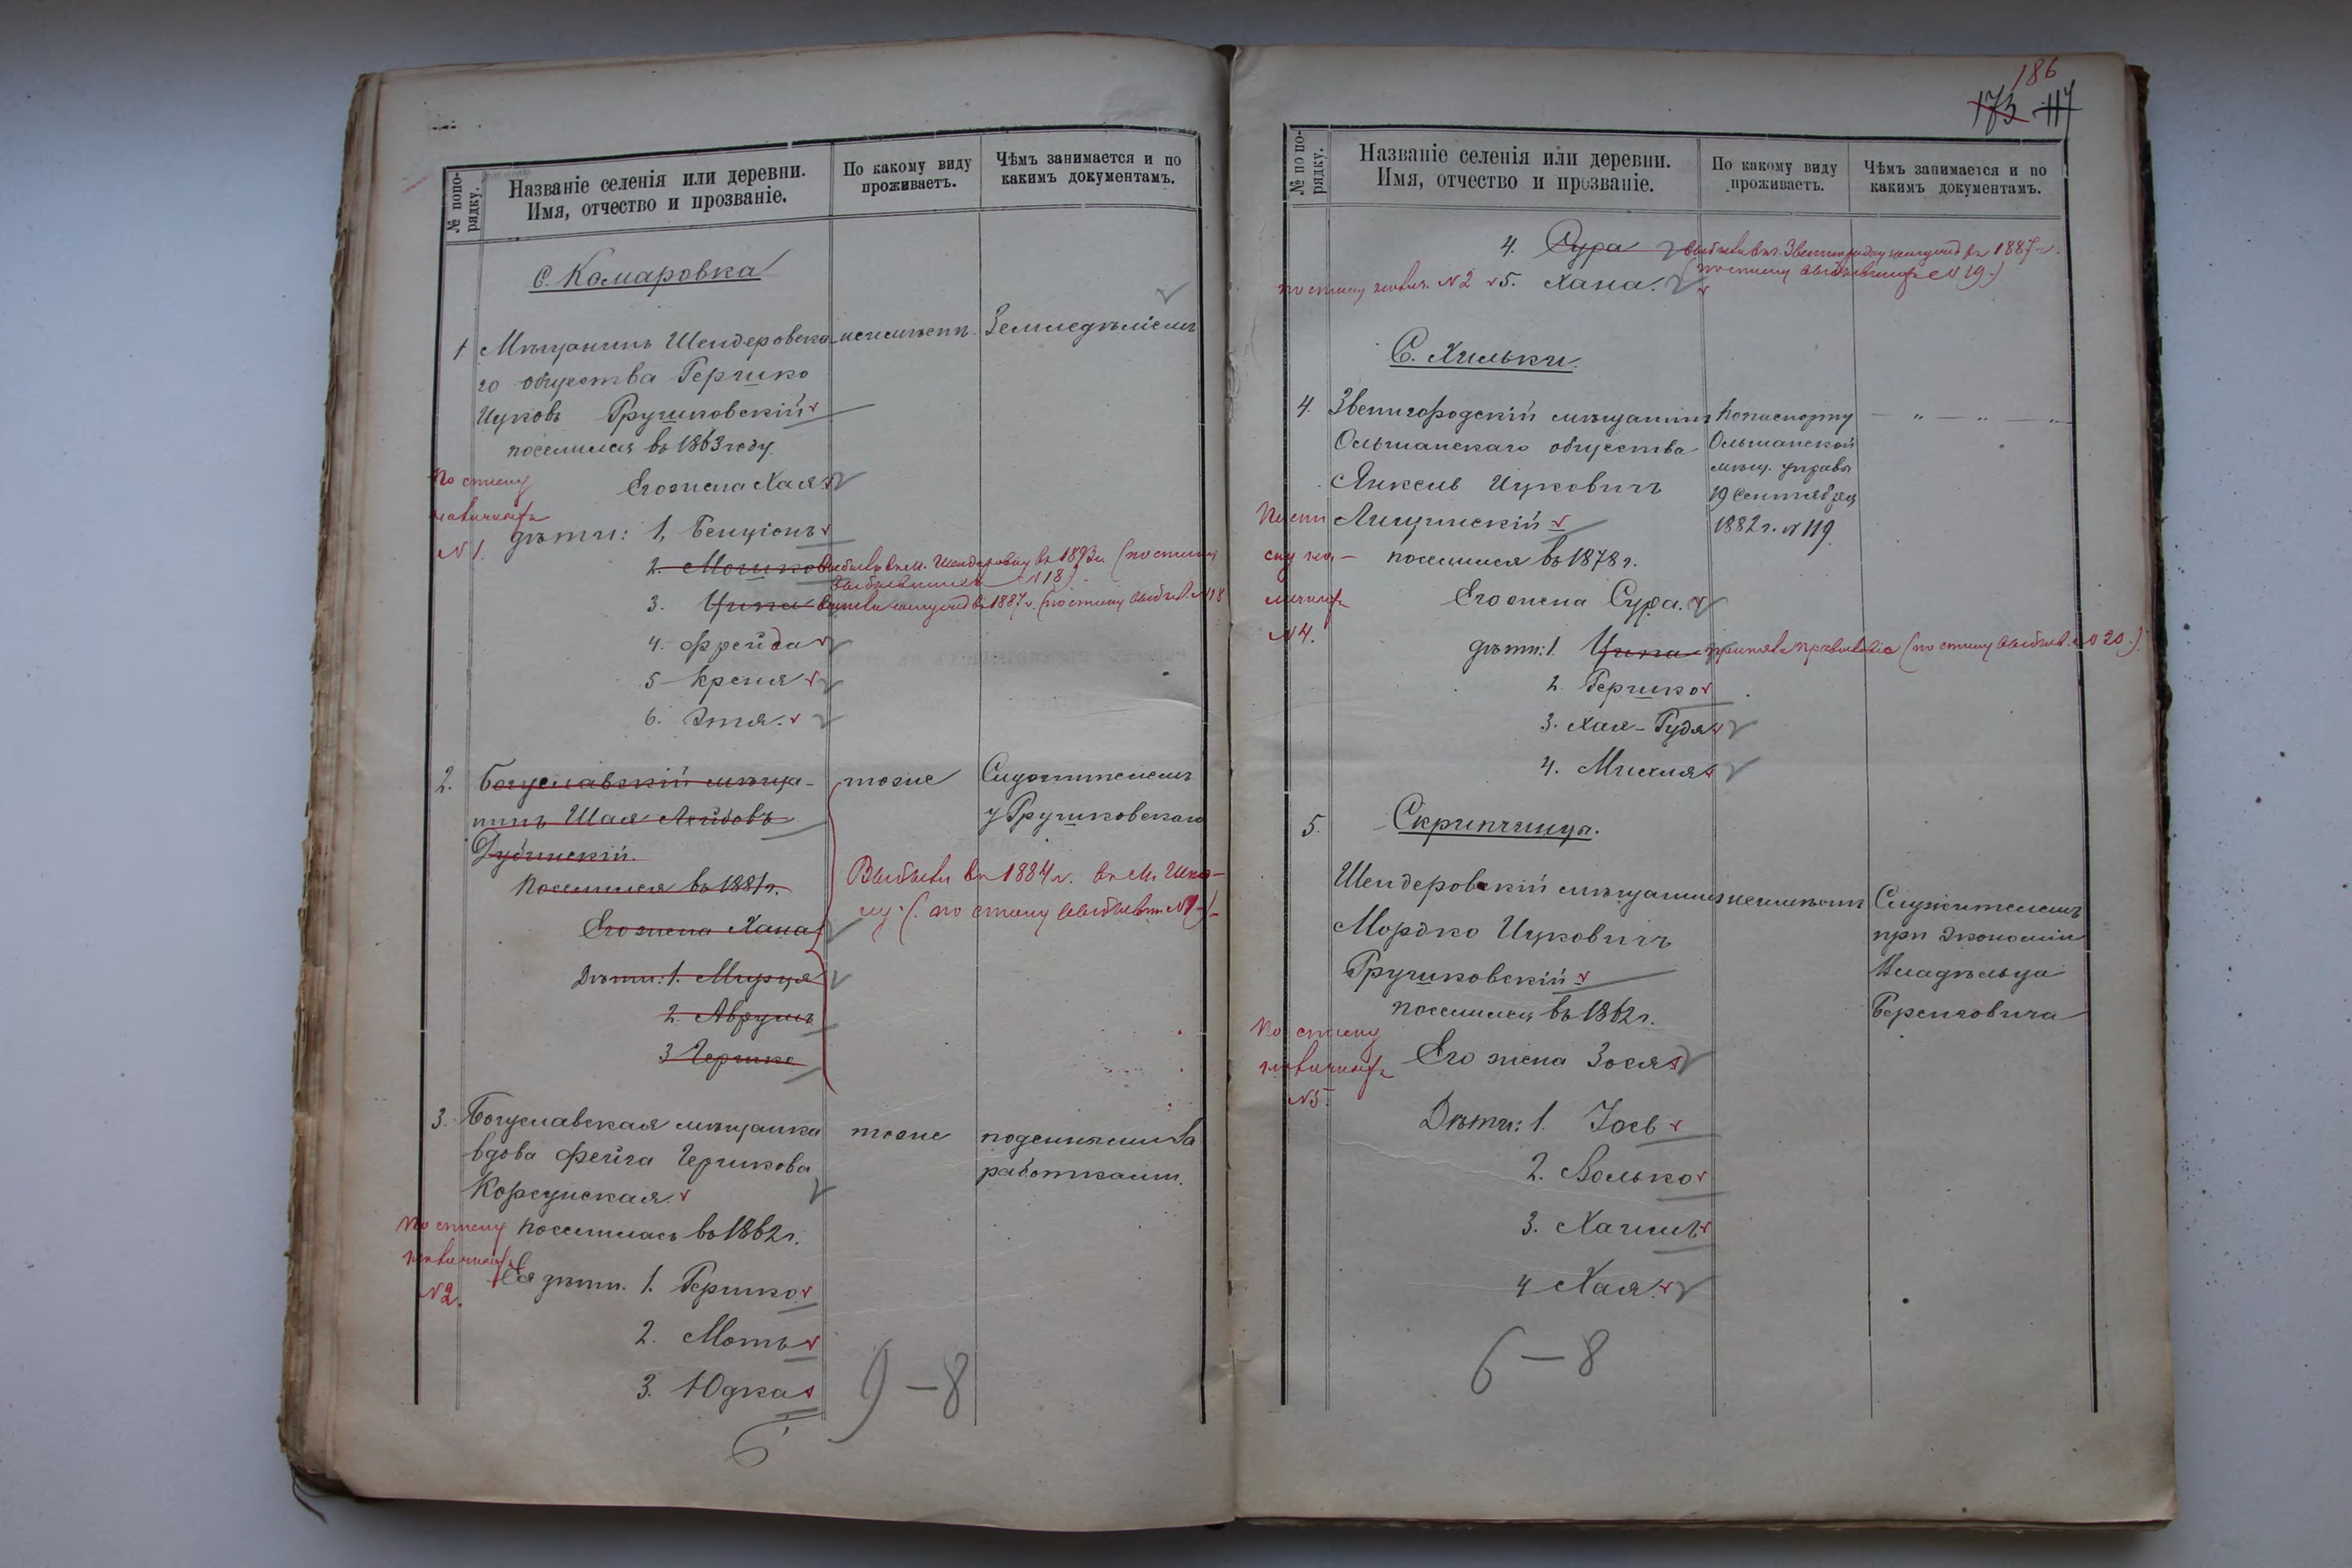 № по по-
рядку.
Названіе селенія или деревни.
Имя, отчество и прозваніе.
По какому виду
проживаетъ.
Чѣмъ занимается и по
какимъ документамъ.
С. Комаровка
1 Мѣщанинъ Шендеровска- неимѣетъ. Земледѣліемъ
го общества Гершко
Ицковъ Грушковскій
поселился въ 1863 году.
По списку
наличныхъ
N 1.
Его жена Хая
дѣти: 1, Бенціонъ
2. Мошко выбылъ въ м. Шендеровку въ 1893 г. (по списку
выбывшихъ N 18)
3. Ципа вышла замужъ въ 1887 г. (по списку выбыв. N 18
4. Фрейда
5 Креня
6. Этя.
2. Богуславскій мѣща- тоже Служителемъ
нинъ Шая Лейбовъ у Грушковскаго
Дубинскій.
Поселился въ 1881 г.
Выбыли въ 1884 г. въ м.
(по списку выбывш N
Его жена Хана
Дѣти: 1. Мирця
2. Аврумъ
3 Гершко
3. Богуславская мѣщанка тоже поденными
вдова Фейга Гершкова работками.
Корсунская.
поселилась въ 1862 г.
По списку
наличныхъ
N 2.
Ея дѣти. 1. Гершко
2. Мотъ
3. Юдка
9 – 8
6
186
173 117
№ по по-
рядку.
Названіе селенія или деревни.
Имя, отчество и прозваніе.
По какому виду
проживаетъ.
Чѣмъ занимается и по
какимъ документамъ.
4. Сура выбыла въ г. Звенигородку замужъ въ 1887 г.
(по списку выбывшихъ N 19.)
по списку налич. N 2 5. Хана.
С. Хильки.
4. Звенигородскій мѣщанинъ По паспорту — „ — „ — „
Ольшанскаго общества Ольшанской
мѣщ. управы
Янкель Ицковичъ 19 Сентября
Лищинскій 1882 г. N 119.
поселился въ 1878 г.
По спи
ску на-
личныхъ
N 4.
Его жена Сура.
дѣти: 1. Ципа приняла православіе (по списку выбыв. N 20.)
2. Гершко
3. Хая-Гудя
4. Михля
5. Скрипчинцы.
Шендеровскій мѣщанинъ неимѣетъ Служителемъ
Мордко Ицковичъ при Экономіи
Грушковскій Владѣльца
поселился въ 1862 г. Березовича
По списку
наличныхъ
N 5.
Его жена Зося
Дѣти: 1. Іосъ
2. Волько
3. Хаимъ
4 Хая.
6 – 8